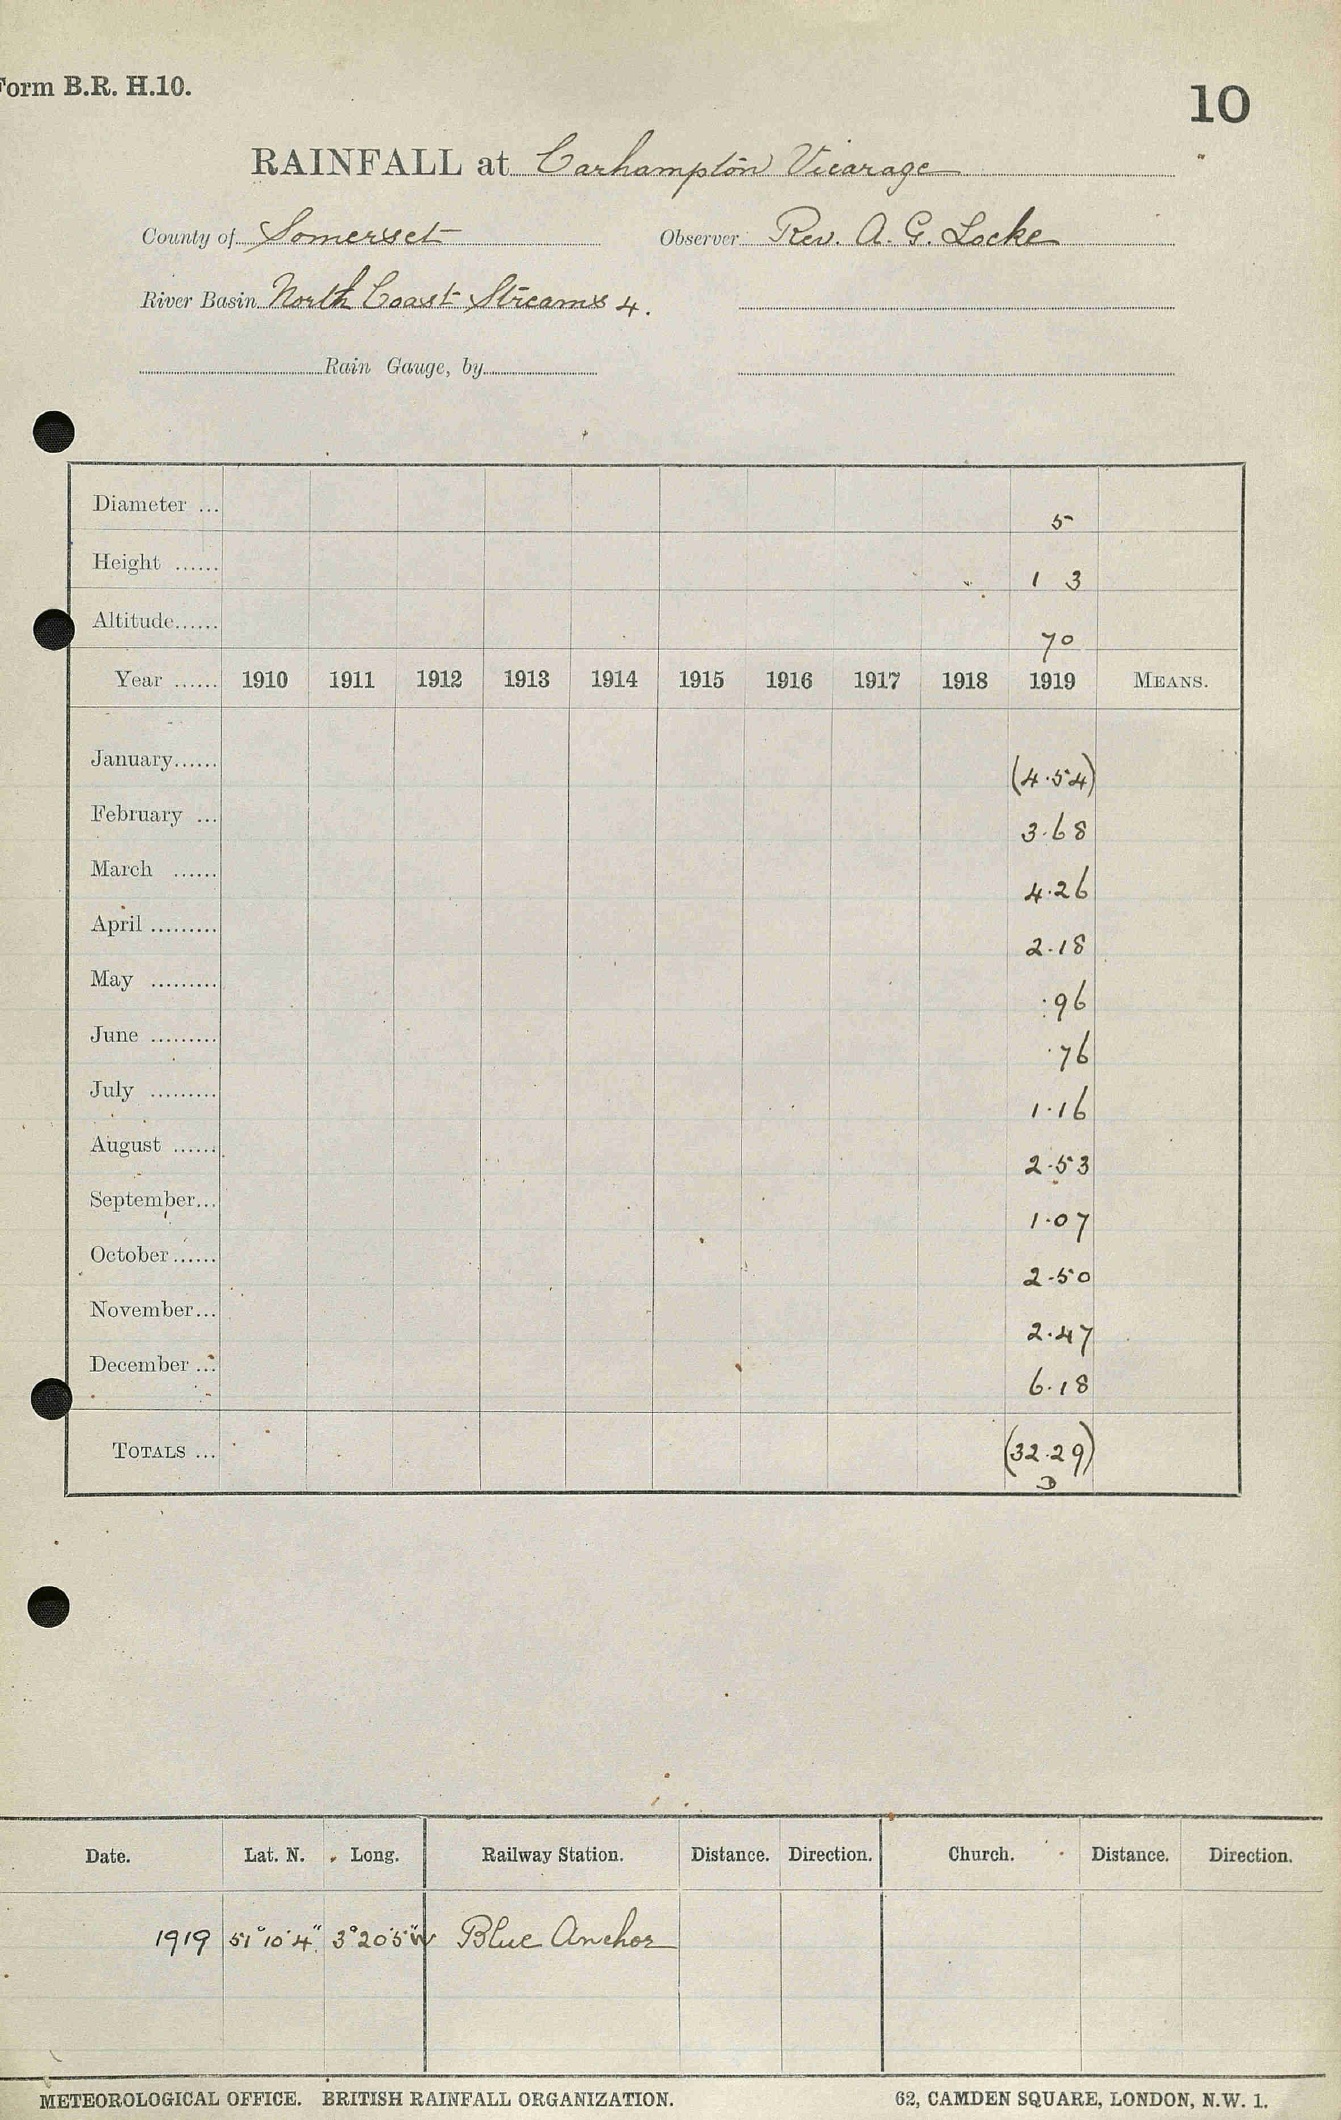 Form B.R. H.10.
10
RAINFALL at Carhampton Vicarage
County of Somerset Observer Rev. A. G. Locke
River Basin North Coast Streams 4.
Rain Gauge, by
Diameter ... 5
Height ...... 1 3
Altitude...... 70
Year ...... 1910 1911 1912 1913 1914 1915 1916 1917 1918 1919 MEANS.
January...... (4.54)
February ... 3.68
March ...... 4.26
April ......... 2.18
May ......... .96
June ......... .76
July ......... 1.16
August ...... 2.53
September... 1.07
October...... 2.50
November... 2.47
December ... 6.18
TOTALS ... (32.29)
D
Date. Lat. N. Long. Railway Station. Distance. Direction. Church. Distance. Direction.
1919 51°10'4" 3°20'5"W Blue Anchor
METEOROLOGICAL OFFICE. BRITISH RAINFALL ORGANIZATION. 62, CAMDEN SQUARE, LONDON, N.W. 1.